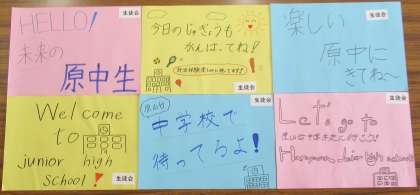 HELLO!
未来の
原中生
生徒会
今日のじゅぎょうも
がんばってね!
生徒会
楽しい
原中に
きてね〜
生徒会
Welcome
to
junior high
school!
生徒会
中学校で
待ってるよ!
生徒会
Let's go to
junior high school
生徒会